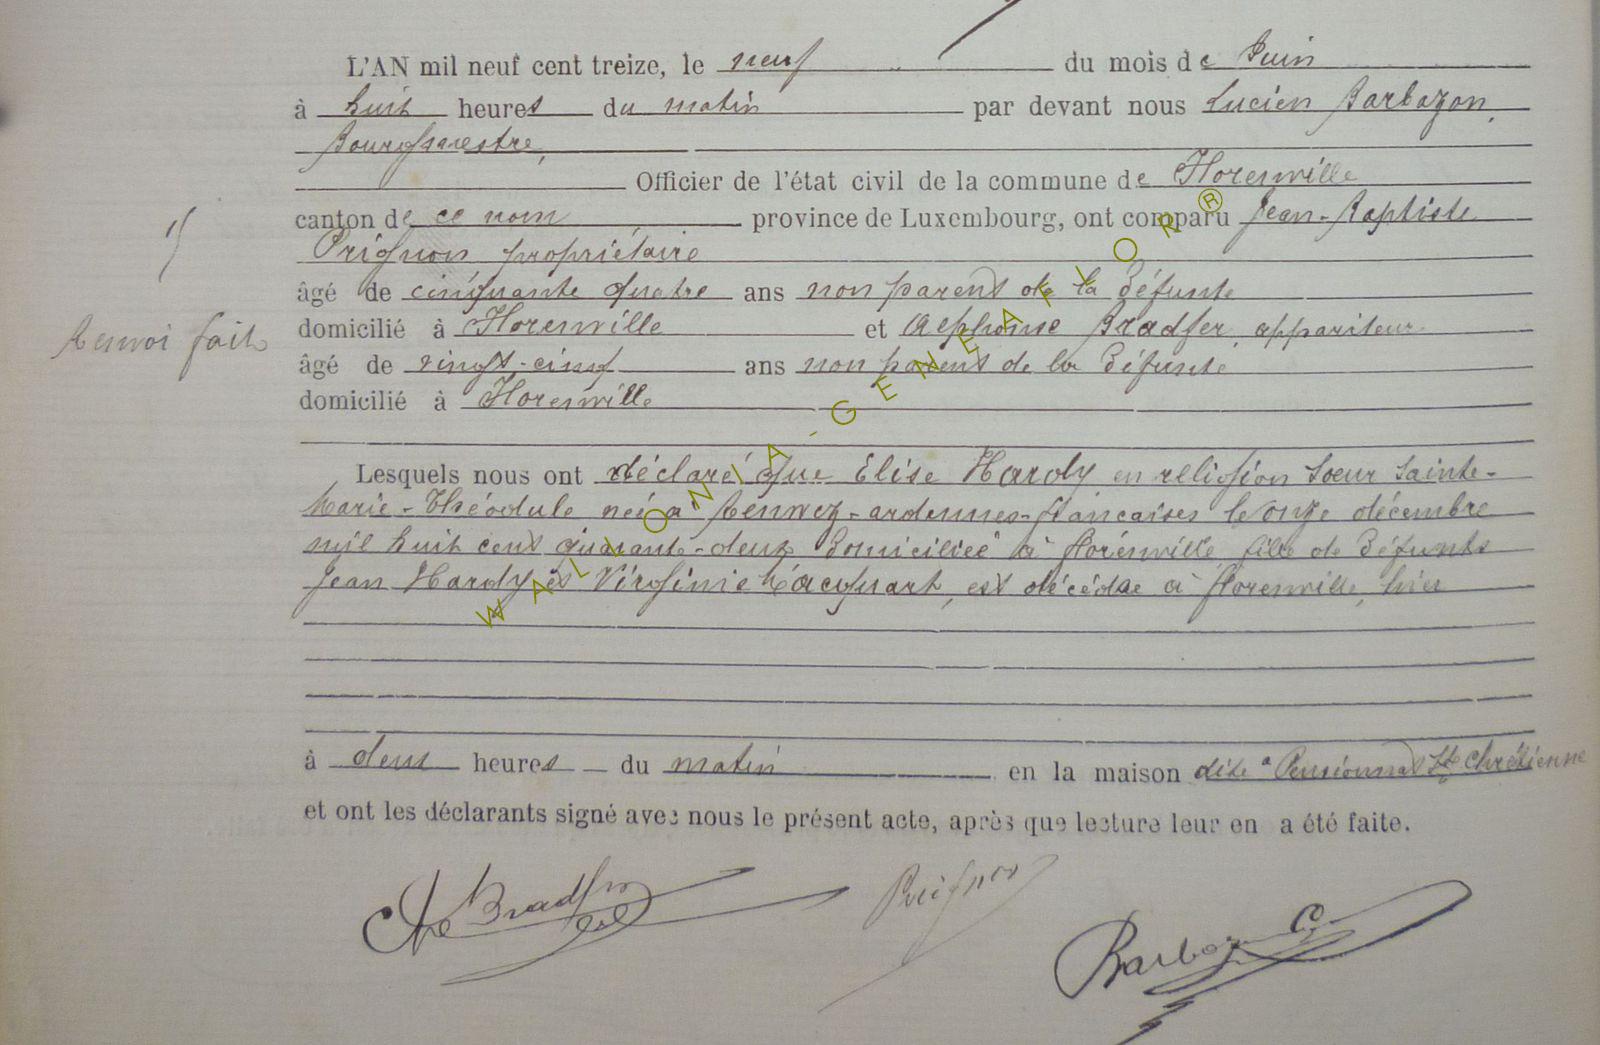 L'AN mil neuf cent treize, le neuf du mois de Juin
à huit heures du matin par devant nous Lucien Barbazon,
Bourgmestre,
Officier de l'état civil de la commune de Florenville
canton de ce nom province de Luxembourg, ont comparu Jean-Baptiste
Prignon propriétaire
âgé de cinquante quatre ans non parent de la défunte
domicilié à Florenville et Alphonse Bradfer, appariteur
Renvoi fait
âgé de vingt-cinq ans non parent de la défunte
domicilié à Florenville
Lesquels nous ont déclaré que Elise Hardy en religion Soeur Sainte-
Marie-Théodule née à Renwez-ardennes-françaises le onze décembre
mil huit cent quarante-deux domiciliée à florenville fille de défunts
Jean Hardy et Virginie Lacquart, est décédée à florenville, hier
à deux heures du matin en la maison dite "Pensionnat Ste Chrétienne
et ont les déclarants signé avec nous le présent acte, après que lecture leur en a été faite.
Ale Bradfer
Prignon
Barbazon
WALLONIA-GENEAFLOR®